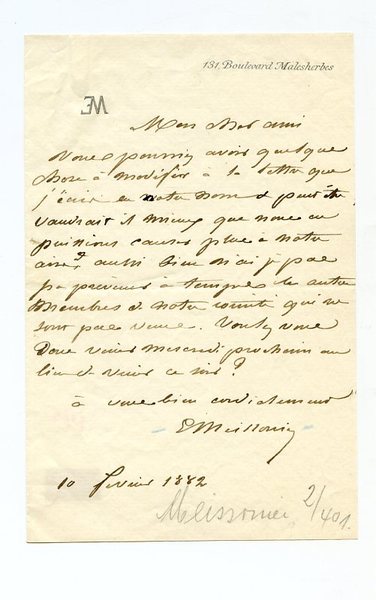 131, Boulevard Malesherbes
EM
Mon cher ami
Vous pourriez avoir quelque
chose à modifier à la lettre que
j'écris en notre nom & peut être
vaudrait il mieux que nous en
puissions causer plus à notre
aise, aussi bien n'ai je pas
pu prévenir à temps les autres
membres de notre comité qui ne
sont pas venus. Voulez vous
donc venir mercredi prochain au
lieu de venir ce soir ?
à vous bien cordialement
EMeissonier
10 février 1882
Meissonier 2/401.